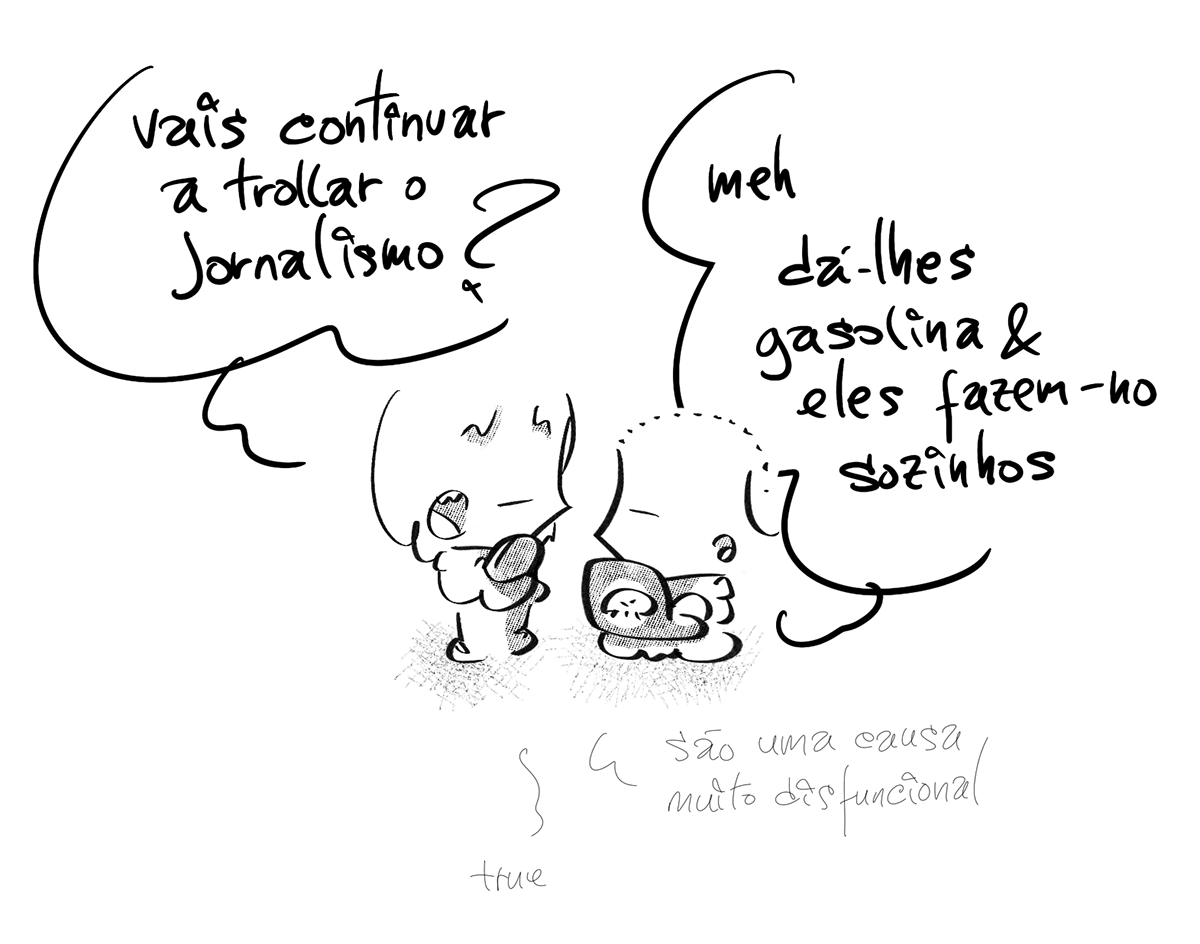 vais continuar
a trollar o
jornalismo?
meh
dá-lhes
gasolina &
eles fazem-no
sozinhos
são uma causa
muito disfuncional
true